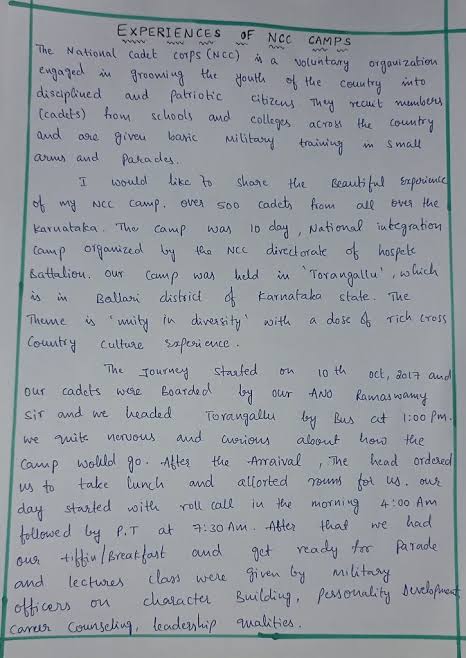 EXPERIENCES OF NCC CAMPS
The National cadet corps (NCC) is a voluntary organization
engaged in grooming the youth of the country into
disciplined and Patriotic citizens They recuit members
(cadets) from schools and colleges across the country
and are given basic military training in small
arms and Parades.
I would like to share the Beautiful Experience
of my NCC Camp. over 500 cadets from all over the
Karnataka. The camp was 10 day, National integration
Camp organized by the NCC directorate of hospete
Battalion. our camp was held in 'Torangallu', which
is in Ballari district of Karnataka state. The
Theme is 'unity in diversity' with a dose of rich cross
Country Culture Experience.
The Journey Started on 10th oct, 2017 and
our cadets were Boarded by our ANO Ramaswamy
Sir and we headed Torangallu by Bus at 1:00 Pm.
we quite nervous and curious about how the
camp would go. After the Arraival, The head ordered
us to take lunch and allorted rooms for us. our
day started with roll call in the morning 4:00 Am
followed by P.T at 7:30 Am. After that we had
our tiffin/Breakfast and get ready for Parade
and lectures class were given by military
officers on character Building, Personality Development,
Career Counseling, leadership qualities.